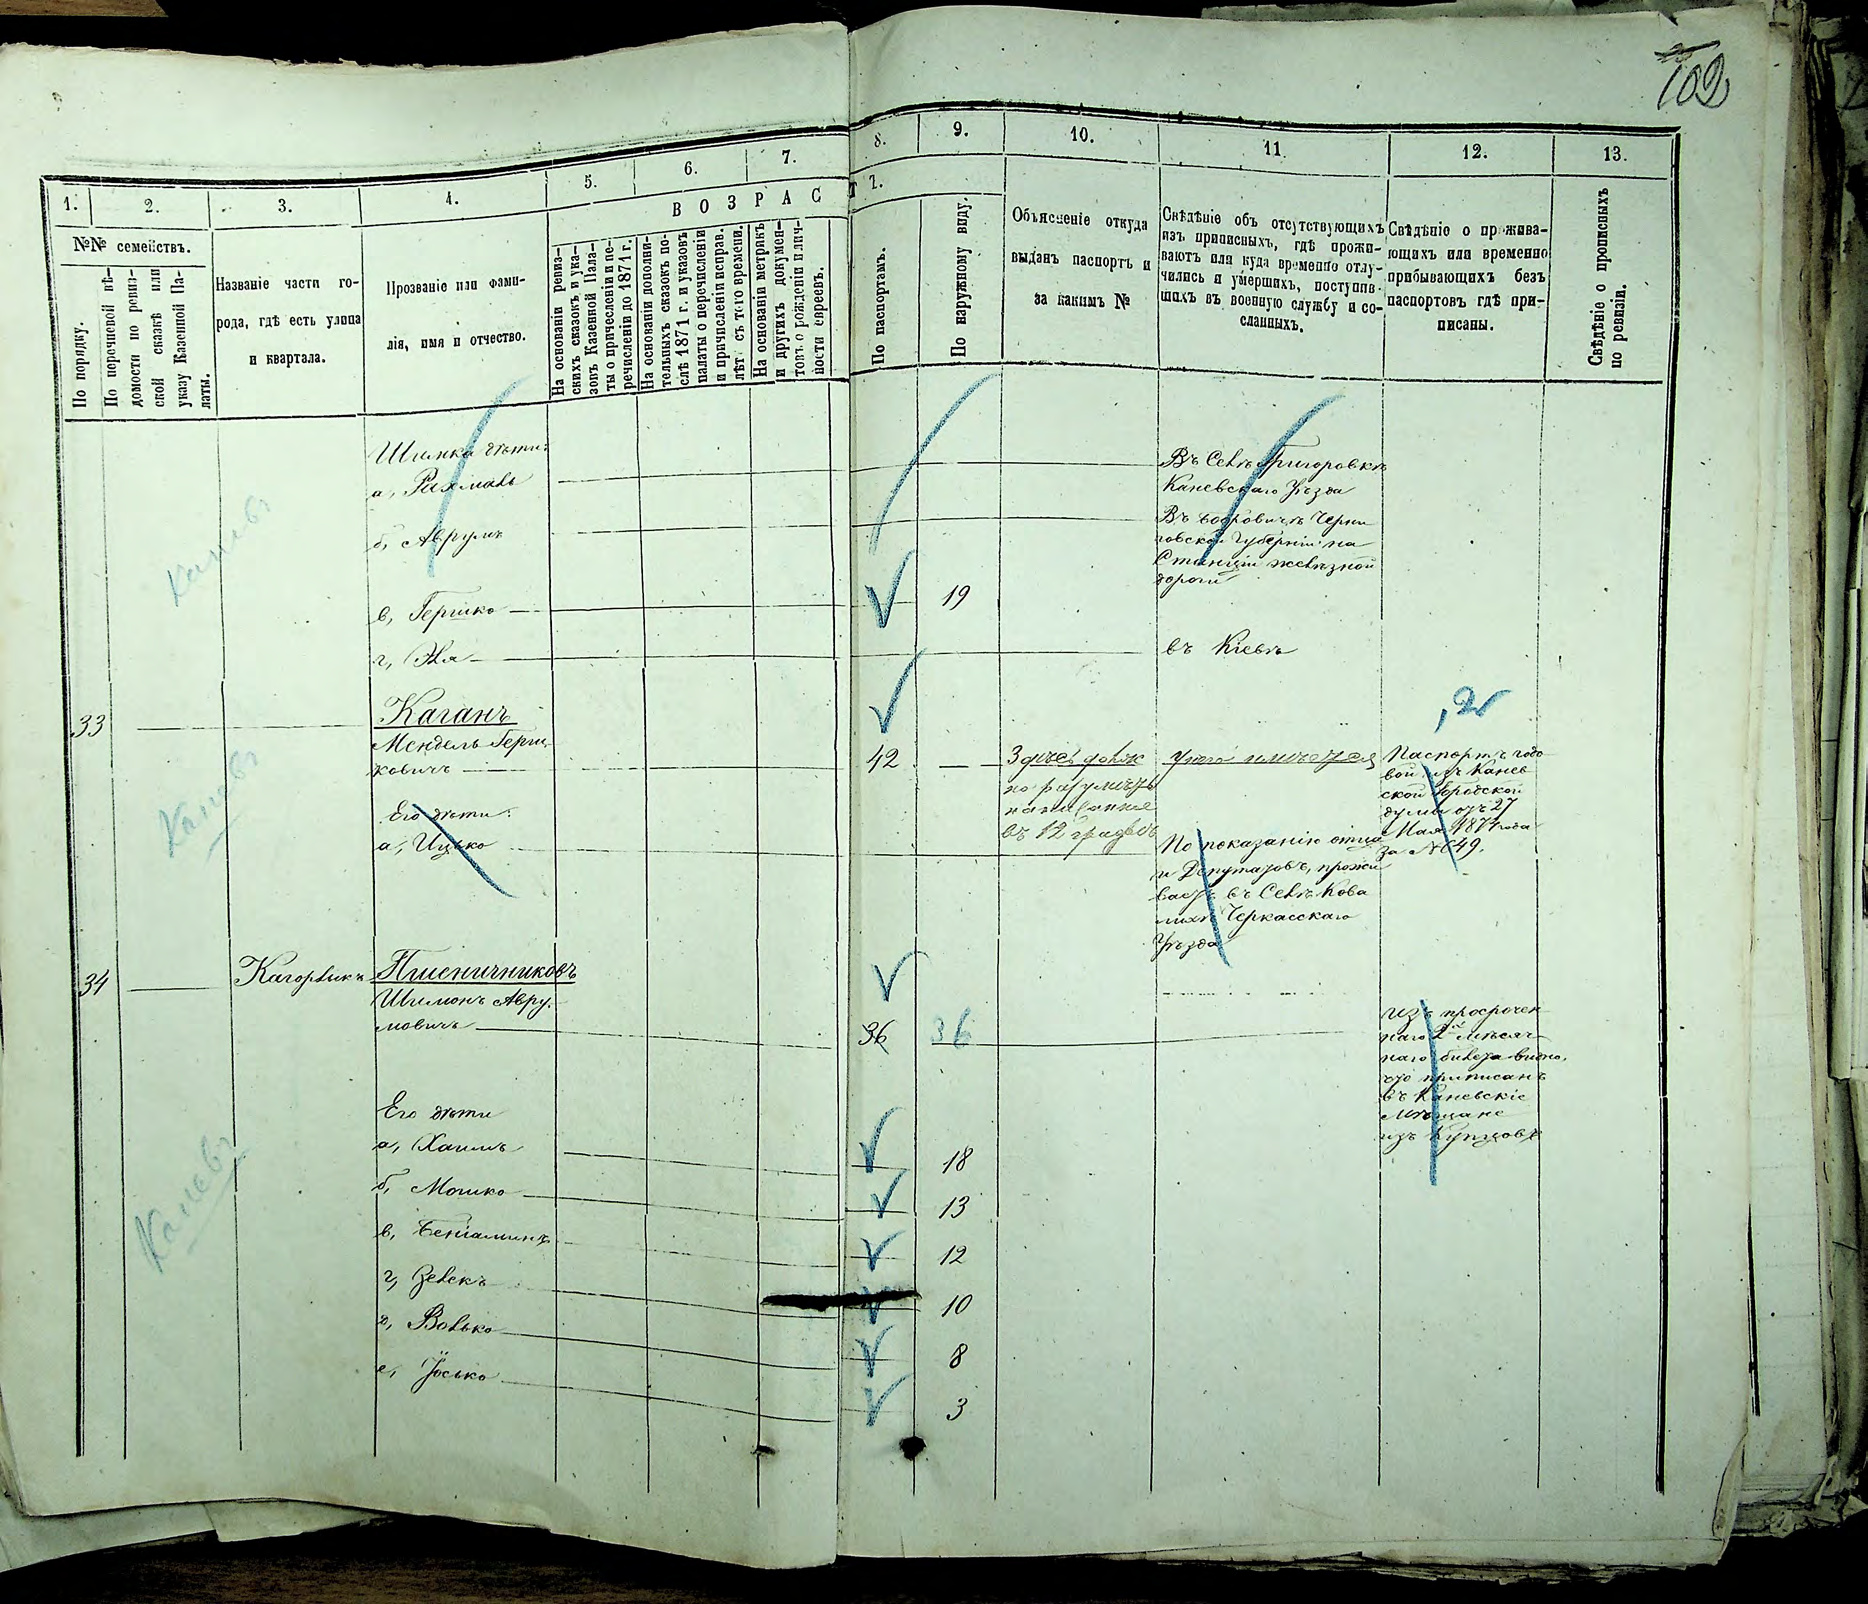 102
1.
2.
3.
4.
5.
6.
7.
8.
9.
10.
11.
12.
13.
№№ семействъ.
В О З Р А С Т Ъ.
По порядку.
По перечневой вѣ-
домости по ревиз-
ской сказкѣ или
указу Казенной Па-
латы.
Названіе части го-
рода, гдѣ есть улица
и квартала.
Прозваніе или фами-
лія, имя и отчество.
На основаніи ревиз-
скихъ сказокъ и ука-
зовъ Казенной Пала-
ты о причисленіи и пе-
речисленіи до 1871 г.
На основаніи дополни-
тельныхъ сказокъ по-
слѣ 1871 г. и указовъ
палаты о перечисленіи
и причисленіи исправ.
лѣт съ того времени.
На основаніи метрикъ
и другихъ докумен-
товъ о рожденіи и лич-
ности евреевъ.
По паспортамъ.
По наружному виду.
Объясненіе откуда
выданъ паспортъ и
за какимъ №
Свѣдѣніе объ отсутствующихъ
изъ приписныхъ, гдѣ прожи-
ваютъ или куда временно отлу-
чились и умершихъ, поступив-
шихъ въ военную службу и со-
сланныхъ.
Свѣдѣніе о прожива-
ющихъ или временно
прибывающихъ безъ
паспортовъ гдѣ при-
писаны.
Свѣдѣніе о прописныхъ
по ревизіи.
Каневъ
Шимка дѣти:
а, Рахмаль
Въ Селѣ Григоровкѣ
Каневскаго Уѣзда
б, Аврумъ
Въ Бобровичѣ Черни
говской Губерніи на
Станціи желѣзной
дороги
в, Гершко
19
г, Эля
въ Кіевѣ
33
Каганъ
Мендель Герш-
ковичъ
42
Паспортъ годо
вой изъ Канев
ской Городской
думы отъ 27
Мая 1874 года
за № 649.
Каневъ
Его дѣти:
а, Ицько
въ 12 графѣ
По показанію отца
и Депутатовъ, прожи
ваетъ въ Селѣ Кова
лихѣ Черкасскаго
Уѣзда
34
Кагорлыкъ
Пшеничниковъ
Шимонъ Авру-
мовичъ
36
36
изъ просрочен
наго 2й мѣсяч
наго билета видно,
что приписанъ
въ Каневскіе
Мѣщане
изъ Купцовъ
Каневъ
Его дѣти
а, Хаимъ
18
б, Мошко
13
в, Беніаминъ
12
г, Зелекъ
10
д, Волько
8
е, Іосько
3